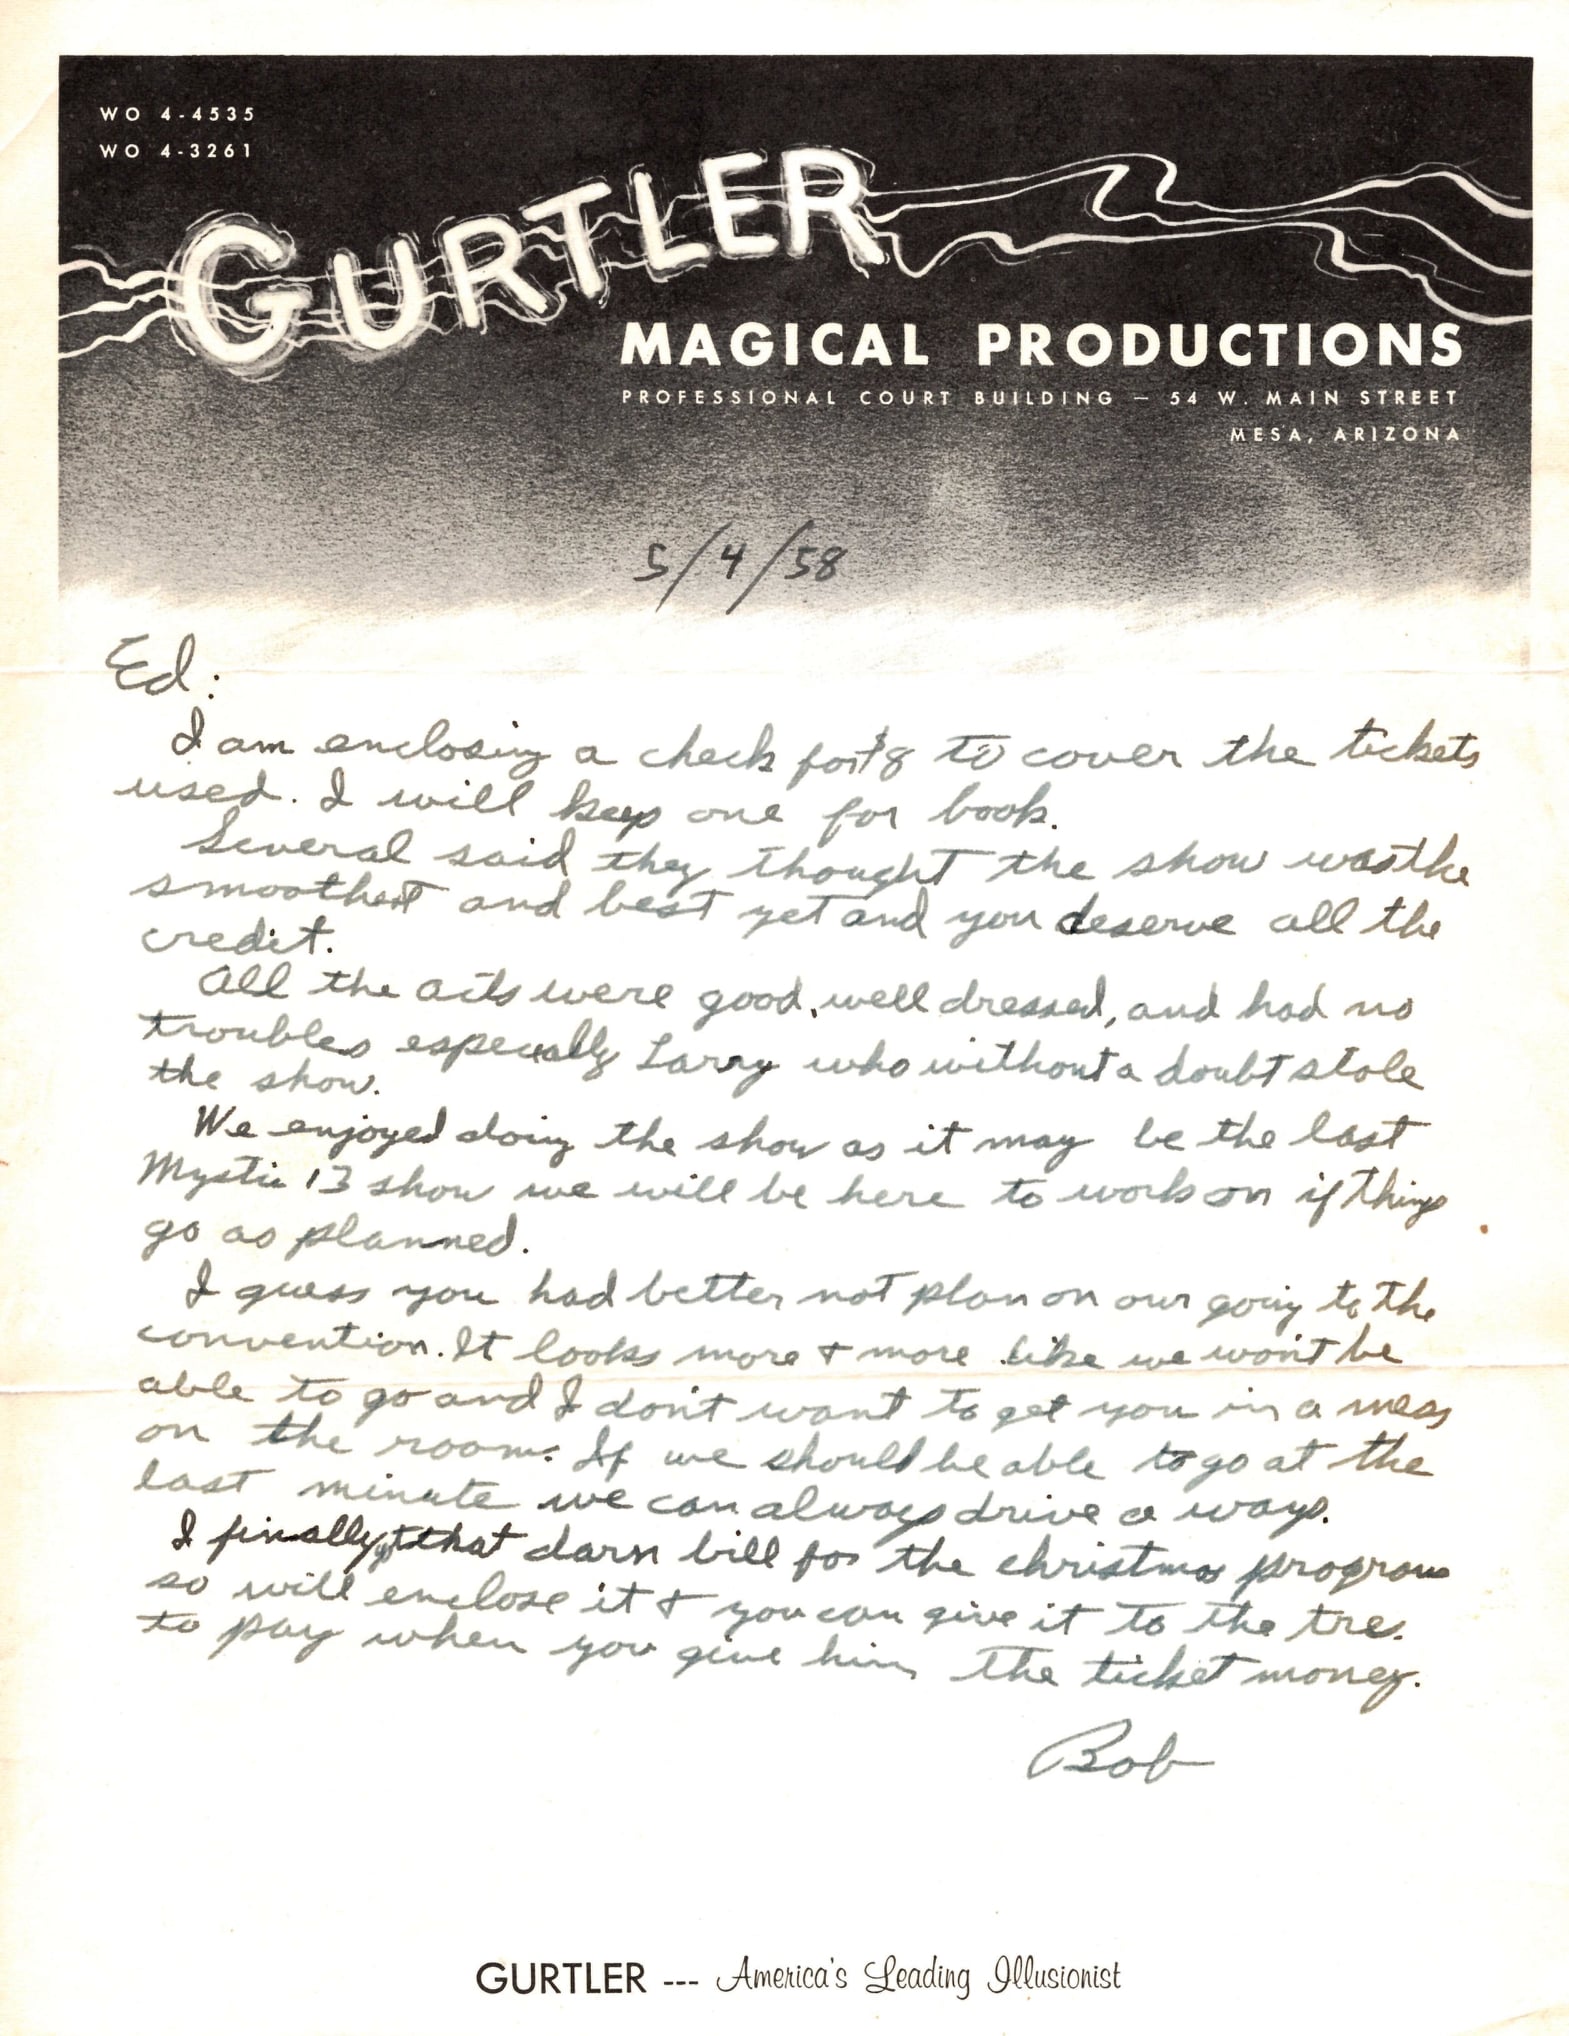 WO 4-4535
WO 4-3261
GURTLER
MAGICAL PRODUCTIONS
PROFESSIONAL COURT BUILDING — 54 W. MAIN STREET
MESA, ARIZONA
5/4/58
Ed:
I am enclosing a check for $8 to cover the tickets
used. I will keep one for book.
Several said they thought the show was the
smoothest and best yet and you deserve all the
credit.
All the acts were good, well dressed, and had no
troubles especially Larry who without a doubt stole
the show.
We enjoyed doing the show as it may be the last
Mystic 13 show we will be here to work on if things
go as planned.
I guess you had better not plan on our going to the
convention. It looks more & more like we won't be
able to go and I don't want to get you in a mess
on the room. If we should be able to go at the
last minute we can always drive a ways.
I finally that darn bill for the christmas program
so will enclose it & you can give it to the tre.
to pay when you give him the ticket money.
Bob
GURTLER --- America's Leading Illusionist